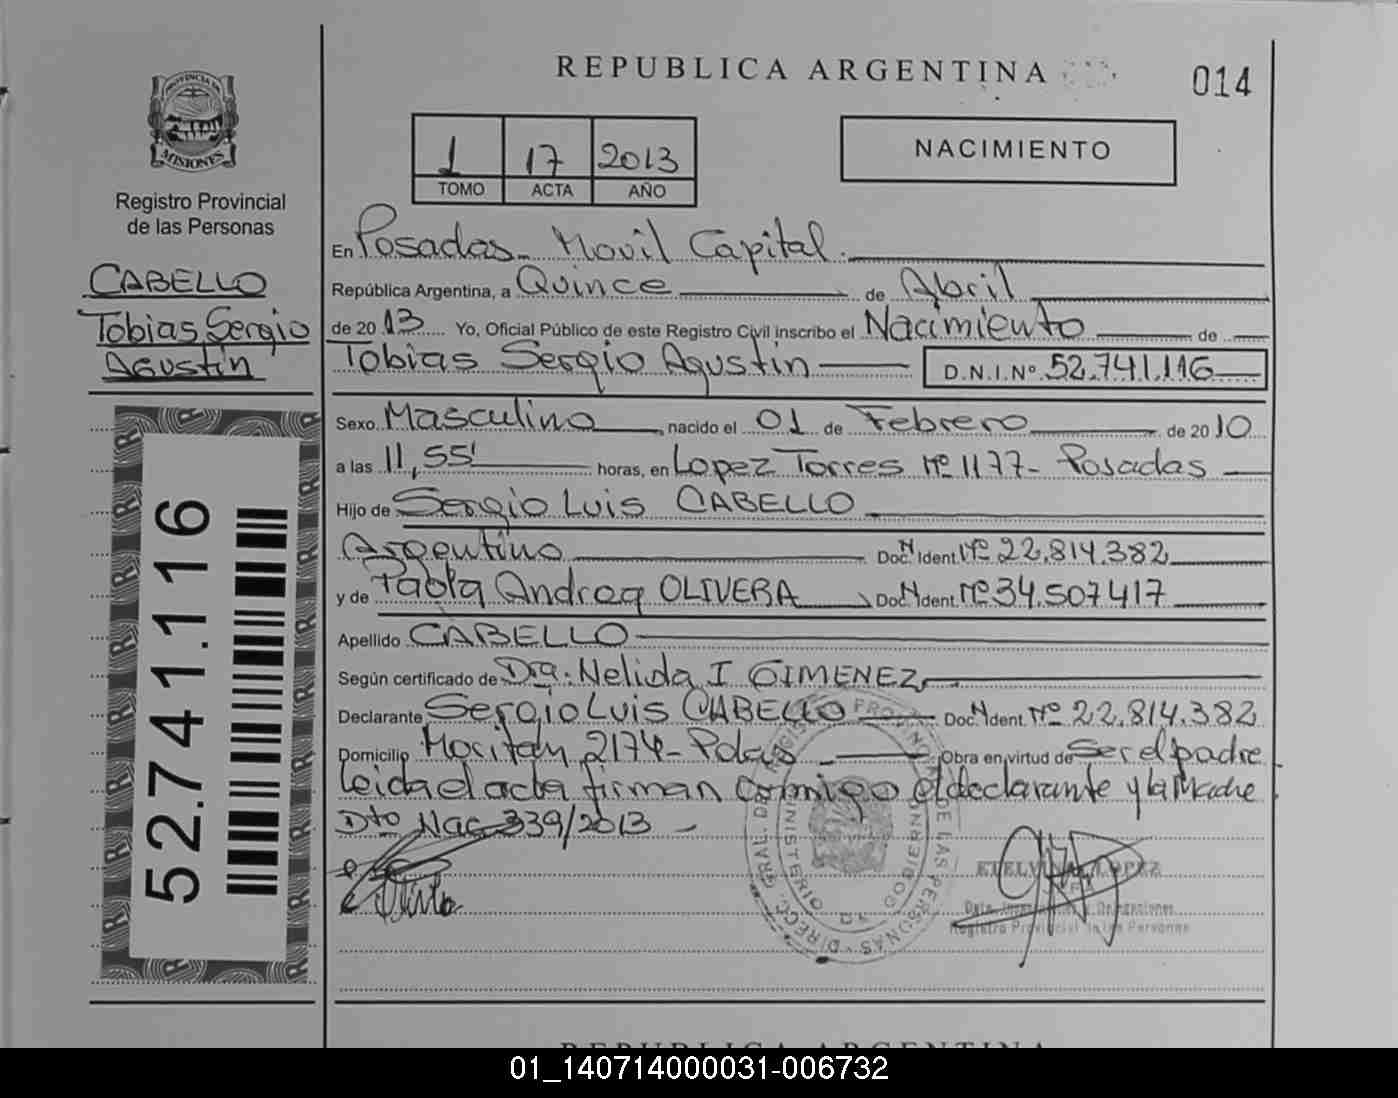 REPUBLICA ARGENTINA
014
PROVINCIA DE
MISIONES
Registro Provincial
de las Personas
CABELLO
Tobias Sergio
Agustin
52.741.116
1 17 2013
TOMO ACTA AÑO
NACIMIENTO
En Posadas - Movil Capital.
República Argentina, a Quince de Abril
de 2013 Yo, Oficial Público de este Registro Civil inscribo el Nacimiento de
Tobias Sergio Agustin D.N.I.Nº 52.741.116
Sexo Masculino, nacido el 01 de Febrero de 2010
a las 11,55' horas, en Lopez Torres Nº 1177 - Posadas
Hijo de Sergio Luis CABELLO
Argentino Doc. N Ident. Nº 22.814.382
y de Paola Andrea OLIVERA Doc. N Ident. Nº 34.507417
Apellido CABELLO
Según certificado de Dra. Nelida I GIMENEZ
Declarante Sergio Luis CABELLO Doc. N Ident. Nº 22.814.382
Domicilio 2174 - Pdas Obra en virtud de Ser el padre
leida el acta firman conmigo el declarante y la Madre
Dto Nac 339/2013 -
ETELVINA LOPEZ
Registro Provincial de las Personas
REPUBLICA ARGENTINA
01_140714000031-006732